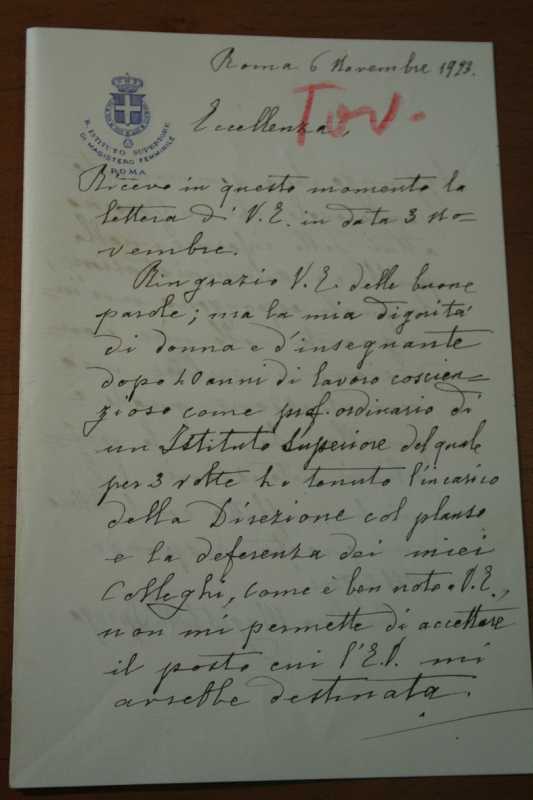 Roma 6 Novembre 1923.
R. ISTITUTO SUPERIORE
DI MAGISTERO FEMMINILE
ROMA
Tov.
Eccellenza,
Ricevo in questo momento la
lettera di V. E. in data 3 No-
vembre.
Ringrazio V. E. delle buone
parole; ma la mia dignità
di donna e d'insegnante
dopo 40 anni di lavoro coscien-
zioso come prof. ordinario di
un Istituto Superiore del quale
per 3 volte ho tenuto l'incarico
della Direzione col plauso
e la deferenza dei miei
Colleghi, come è ben noto a V. E.,
non mi permette di accettare
il posto cui l'E. V. mi
avrebbe destinata.